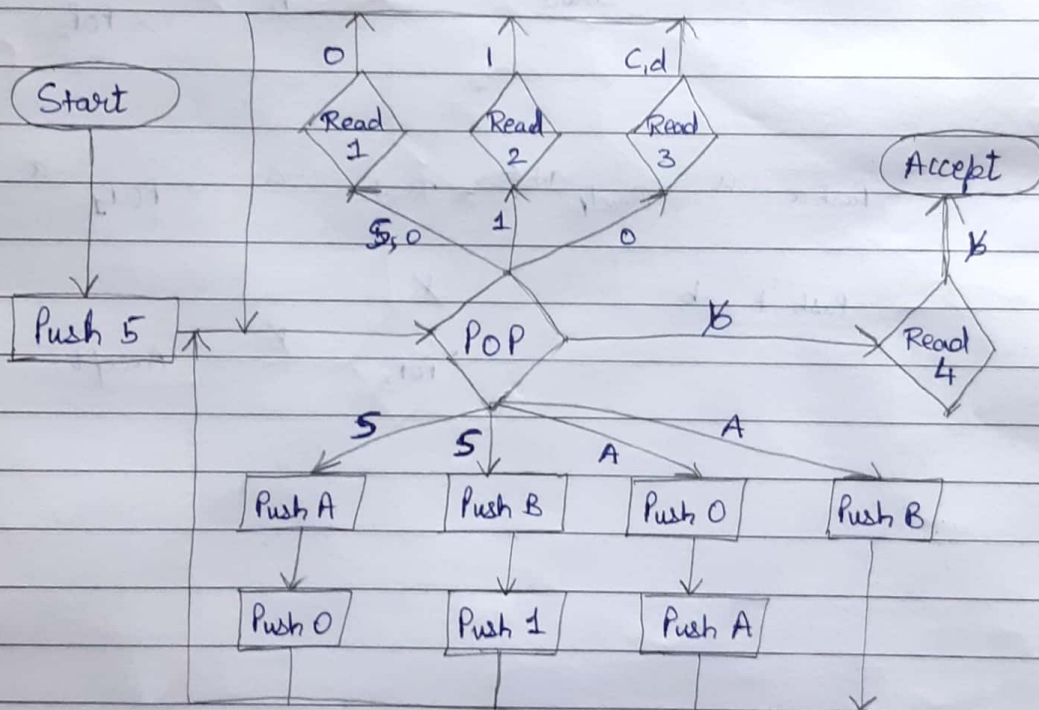 0
1
C,d
Start
Read
1
Read
2
Read
3
Accept
5, 0
1
0
ɓ
Push 5
POP
ɓ
Read
4
5
5
A
A
Push A
Push B
Push 0
Push B
Push 0
Push 1
Push A